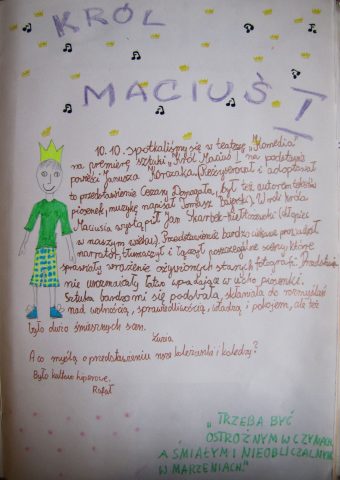 KRÓL
MACIUŚ I
10.10. spotkaliśmy się w teatrze „Komedia”
na premierę sztuki „Król Maciuś I” na podstawie
powieści Janusza Korczaka. Reżyserował i adoptował
to przedstawienie Cezary Domagała, był też autorem tekstów
piosenek, muzykę napisał Tomasz Bajerski. W roli króla
Maciusia wystąpił Jan
w naszym wieku). Przedstawienie bardzo ciekawe prowadził
narrator, tłumaczył i łączył poszczególne sceny, które
sprawiały wrażenie ożywionych starych fotografii. Przedstawie-
nie urozmaicały łatwo wpadające w ucho piosenki.
Sztuka bardzo mi się podobała, skłaniała do rozmyślań
nad wolnością, sprawiedliwością, władzą i pokojem, ale też
było dużo śmiesznych scen.
Zuzia
A co myślą o przedstawieniu nasze koleżanki i koledzy?
Było kultowo hiperowe.
Rafał
„TRZEBA BYĆ
OSTROŻNYM W CZYNACH,
A ŚMIAŁYM I NIEOBLICZALNYM
W MARZENIACH.”